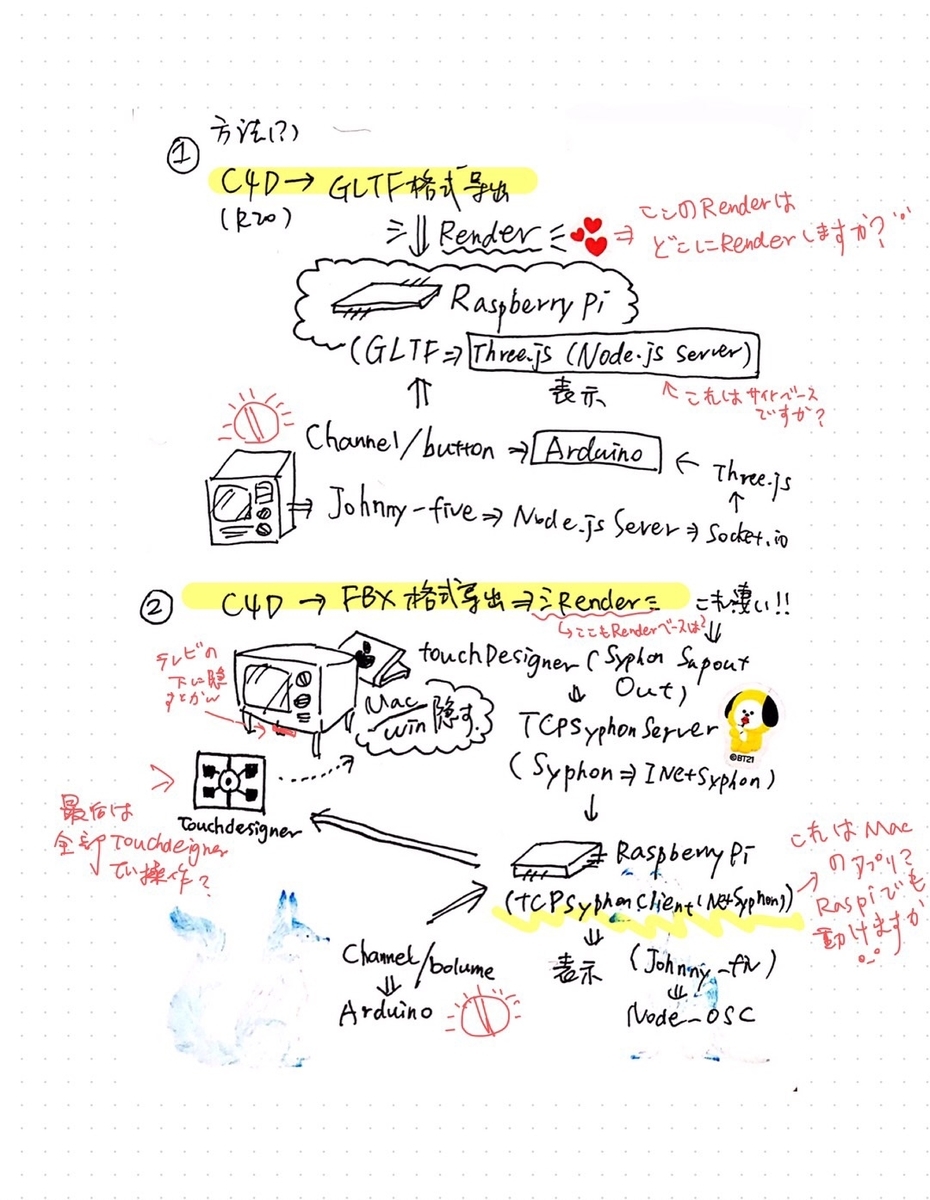 ① 方法(?)
C4D → GLTF格式导出
(R20)
⇓ Render ⇒ このRenderは
どこにRenderしますか?
Raspberry Pi
(GLTF ⇒ Three.js (Node.js Server)
表示
← これはサイトベース
ですか?
⇑
Channel/button ⇒ Arduino ← Three.js
↑
⇒ Johnny-five ⇒ Node.js Sever ⇒ Socket.io
② C4D → FBX 格式导出 ⇒ Render これも凄い!!
↳ここもRenderベースは?
⇓
テレビの
下に隠
すとかw
touchDesigner (Syphon Sapout
Out)
⇓
Mac/win 隠す
TCPSyphonServer
(Syphon ⇒ INet+Syphon)
↓
©BT21
Touchdesigner
最后は
全部Touchdeigner
で操作?
Raspberry Pi
(TCPSyphonClient(Net+Syphon))
これはMac
のアプリ?
Raspiでも
動けますか
⇓
表示
Channel/bolume
⇓
Arduino
(Johnny-fiv)
⇓
Node-OSC